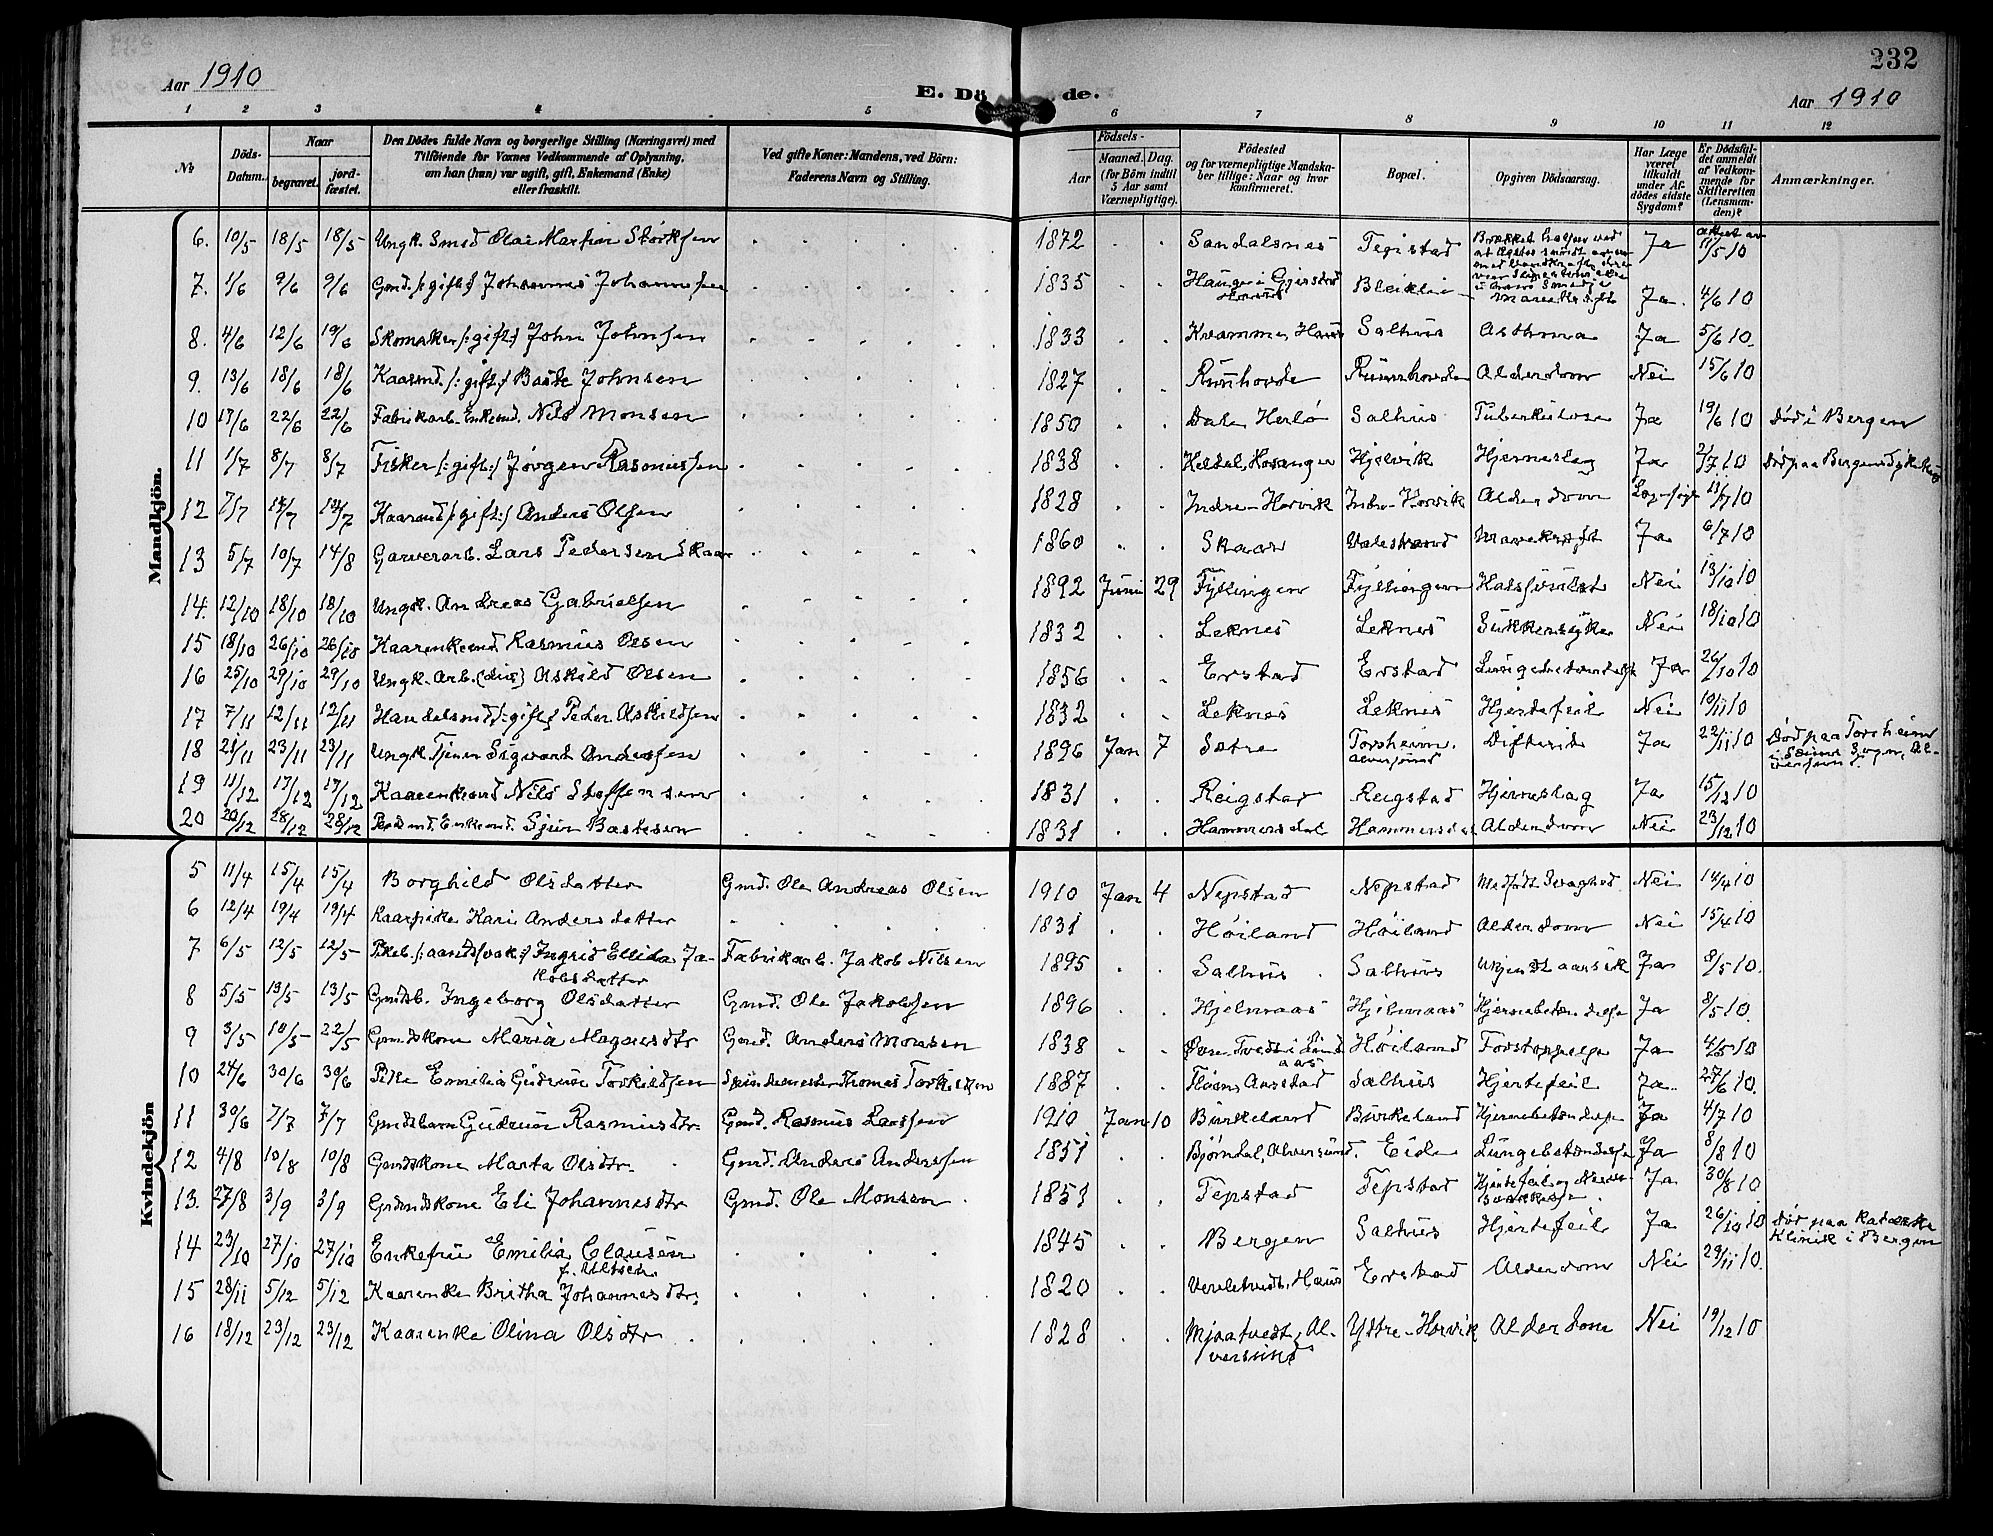 232
Aar 1910
E. Dö de.
Aar 1910
1 2 3 4 5 6 7 8 9 10 11 12
No
Döds-Datum.
Naar
begravet.
jord-fæstet.
Den Dödes fulde Navn og borgerlige Stilling (Næringsvei) med
Tilföiende for Voxnes Vedkommende af Oplysning,
om han (hun) var ugift, gift, Enkemand (Enke)
eller fraskilt.
Ved gifte Koner: Mandens, ved Börn:
Faderens Navn og Stilling.
Födsels-
Aar
Maaned. Dag.
(for Börn indtil
5 Aar samt
Værnepligtige).
Födested
og for værnepligtige Mandska-
ber tillige: Naar og hvor
konfirmeret.
Bopæl.
Opgiven Dödsaarsag.
Har Læge
været
tilkaldt
under Af-
dödes sidste
Sygdom?
Er Dödsfal-
det anmeldt
af Vedkom-
mende for
Skifteretten
(Lensman-
den)?
Anmærkninger.
Mandkjön.
6. 10/5 18/5 18/5 Ungk. Smed Olai Martin Størksen 1872 Sandalsnes Tepstad Brækket halsen ved Ja 11/5 10
7. 1/6 9/6 9/6 Gmd. /: gift :/ Johannes Johannessen 1835 Hauge i Haus Bleiklie Ja. 4/6 10
8. 4/6 12/6 19/6 Skomaker /: gift :/ John Johnsen 1833 Kvamme, Haus Salhus Asthma Ja 5/6 10.
9. 13/6 18/6 18/6 Kaarmd. /: gift :/ Baste Johnsen 1827 Runhovde Runhovde Alderdom Nei 15/6 10
10 17/6 22/6 22/6 Fabrikarb. Enkemd. Nils Monsen 1850 Dale, Herlö Salhus Tuberkulose Ja 19/6 10 Död i Bergen
11 1/7 8/7 8/7 Fisker /: gift :/ Jörgen Rasmussen 1838 Heldal, Hosanger Hjelvik Hjerneslag Ja 2/7 10 Död paa Bergens
12 7/7 14/7 14/7 Kaarmd /: gift :/ Anders Olsen 1828 Indre-Horvik Indre-Horvik Alderdom 13/7 10
13 5/7 10/7 14/8 Garverarb. Lars Pedersen Skaar 1860 Skaar Valestrand Mavekræft Ja 6/7 10
14. 12/10 18/10 18/10 Ungk. Andreas Gabrielsen 1892 Juni 29 Fyllingen Fyllingen Nei 13/10 10
15 18/10 26/10 26/10 Kaarenkemd Rasmus Olsen 1832 Leknes Leknes Sukkersyke Nei 18/10 10
16 25/10 29/10 29/10 Ungk. Arb. Askild Olsen 1856 Erstad Erstad Lungebetændelse Ja 26/10 10
17 7/11 12/11 12/11 Handelsmd /: gift :/ Peder Askildsen 1832 Leknes Leknes Hjertefeil Nei 10/11 10
18 21/11 23/11 23/11 Ungk. Tjener Sigvart Andersen 1896 Jan 7 Sætre Torsheim. Alversund Difterit Ja 22/11 10 Död paa Torsheim
19 11/12 17/12 17/12 Kaarenkemd Nils Steffensen 1831 Reigstad Reigstad Hjerneslag Ja 15/12 10
20 20/12 28/12 28/12 Enkemd. Sjur Bastesen 1831 Hammersdal Hammersdal Alderdom Nei 23/12 10
Kvindekjön
5 11/4 15/4 15/4 Borghild Olsdatter Gmd. Ole Andreas Olsen 1910 Jan 4 Nepstad Nepstad Medfödt Svaghed Nei 14/4 10
6 12/4 19/4 19/4 Kaarpike Kari Andersdatter 1831 Höiland Höiland Alderdom Nei 15/4 10
7 6/5 12/5 12/5 Pikeb. /: aandssvak :/ Ingrid Ellida Ja- Fabrikarb. Jakob Nilsen 1895 Salhus Salhus Ukjendt aarsak Ja 8/5 10.
kobsdatter
8 5/5 13/5 13/5 Gmdsb. Ingeborg Olsdatter Gmd. Ole Jakobsen 1896 Hjelmaas Hjelmaas Hjernebetændelse Ja 8/5 10.
9 3/5 10/5 22/5 Gmdskone Maria Magnesdtr Gmd. Anders Monsen 1838 Övre Tvedt i Höiland Forstoppelse Ja 4/5 10
10 24/6 30/6 30/6 Pike Emilia Gudrun Torkildsen Spindemester Thomas Torkildsen 1887 Aarstad Salhus Hjertefeil Ja. 27/6 10.
11 30/6 7/7 7/7 Gmdsbarn Gudrun Rasmusdtr. Gmd. Rasmus Larssen 1910 Jan 10 Birkeland Birkeland Hjernebetændelse Ja 4/7 10
12 4/8 10/8 10/8 Gmdskone Marta Olsdtr. Gmd. Anders Anderssen 1851 Björndal, Alversund. Eide Lungebetændelse Ja 8/8 10
13. 27/8 3/9 3/9 Gmdskone Eli Johannesdtr Gmd. Ole Monsen 1851 Tepstad Tepstad Hjertefeil og Ja 30/8 10
14 23/10 27/10 27/10 Enkefru Emilia Clausen 1845 Bergen Salhus Hjertefeil Ja 26/10 10 Död paa
f. Klinik i Bergen
15 28/11 5/12 5/12 Kaarenke Britha Johannesdtr. 1820 Haus Erstad Alderdom Nei 29/11 10.
16 18/12 23/12 23/12 Kaarenke Olina Olsdtr 1828 Mjaatvedt, Al- Ytre-Horvik Alderdom Nei 19/12 10
versund